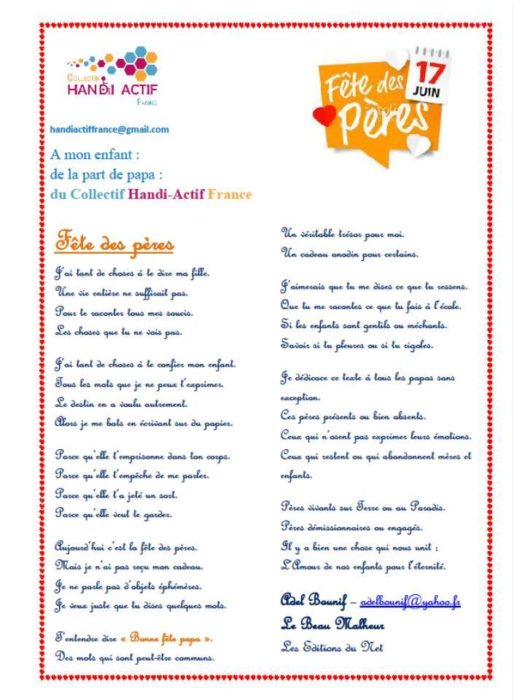 COLLECTIF
HANDI ACTIF
FRANCE
Fête des
pères
17
JUIN
handiactiffrance@gmail.com
A mon enfant :
de la part de papa :
du Collectif Handi-Actif France
Fête des pères
J'ai tant de choses à te dire ma fille.
Une vie entière ne suffirait pas.
Pour te raconter tous mes soucis.
Les choses que tu ne vois pas.
J'ai tant de choses à te confier mon enfant.
Tous les mots que je ne peux t'exprimer.
Le destin en a voulu autrement.
Alors je me bats en écrivant sur du papier.
Parce qu'elle t'emprisonne dans ton corps.
Parce qu'elle t'empêche de me parler.
Parce qu'elle t'a jeté un sort.
Parce qu'elle veut te garder.
Aujourd'hui c'est la fête des pères.
Mais je n'ai pas reçu mon cadeau.
Je ne parle pas d'objets éphémères.
Je veux juste que tu dises quelques mots.
T'entendre dire « Bonne fête papa ».
Des mots qui sont peut-être communs.
Un véritable trésor pour moi.
Un cadeau anodin pour certains.
J'aimerais que tu me dises ce que tu ressens.
Que tu me racontes ce que tu fais à l'école.
Si les enfants sont gentils ou méchants.
Savoir si tu pleures ou si tu rigoles.
Je dédicace ce texte à tous les papas sans
exception.
Ces pères présents ou bien absents.
Ceux qui n'osent pas exprimer leurs émotions.
Ceux qui restent ou qui abandonnent mères et
enfants.
Pères vivants sur Terre ou au Paradis.
Pères démissionnaires ou engagés.
Il y a bien une chose qui nous unit :
L'Amour de nos enfants pour l'éternité.
Adel Bounif – adelbounif@yahoo.fr
Le Beau Malheur
Les Editions du Net